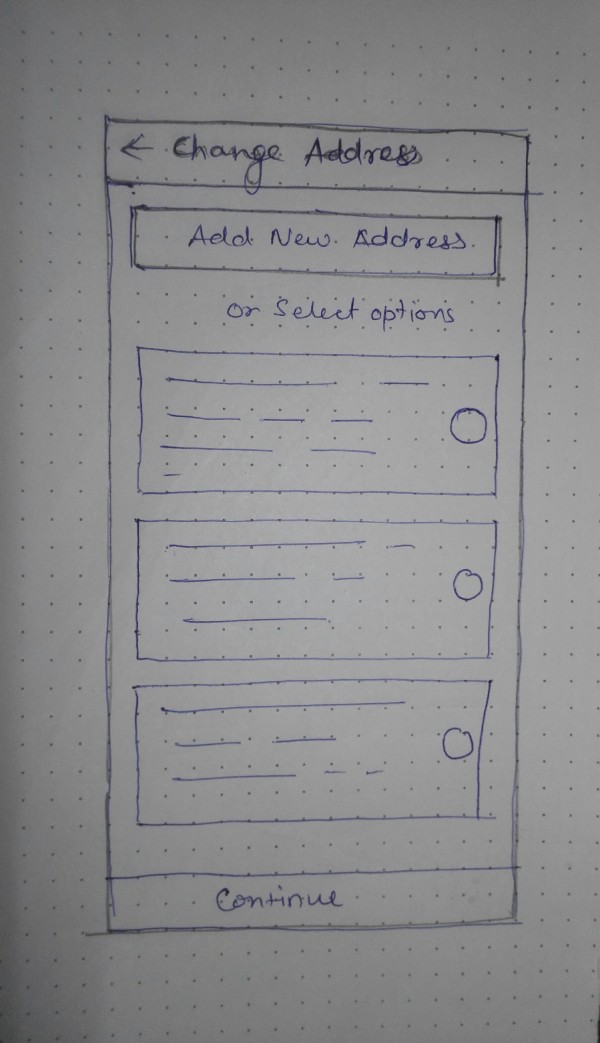 ← Change Address
Add New Address
or Select options
Continue